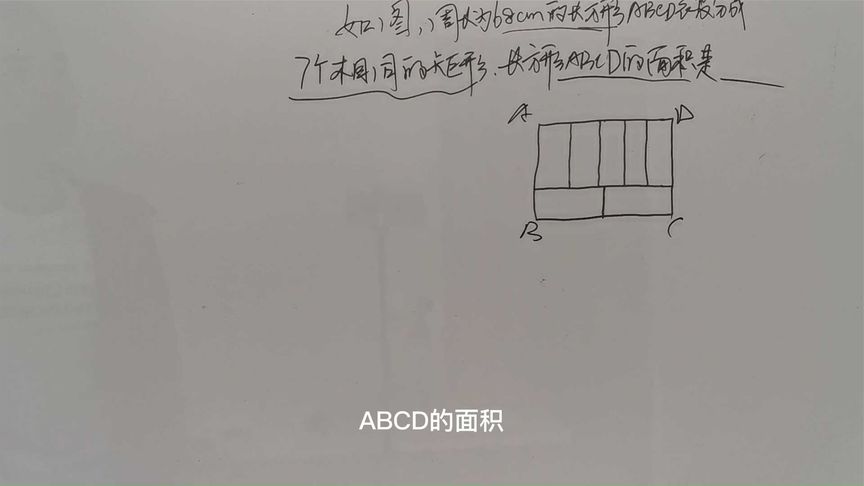 如图,周长为68cm的长方形ABCD被分成
7个相同的矩形,长方形ABCD的面积是
A
D
B
C
ABCD的面积